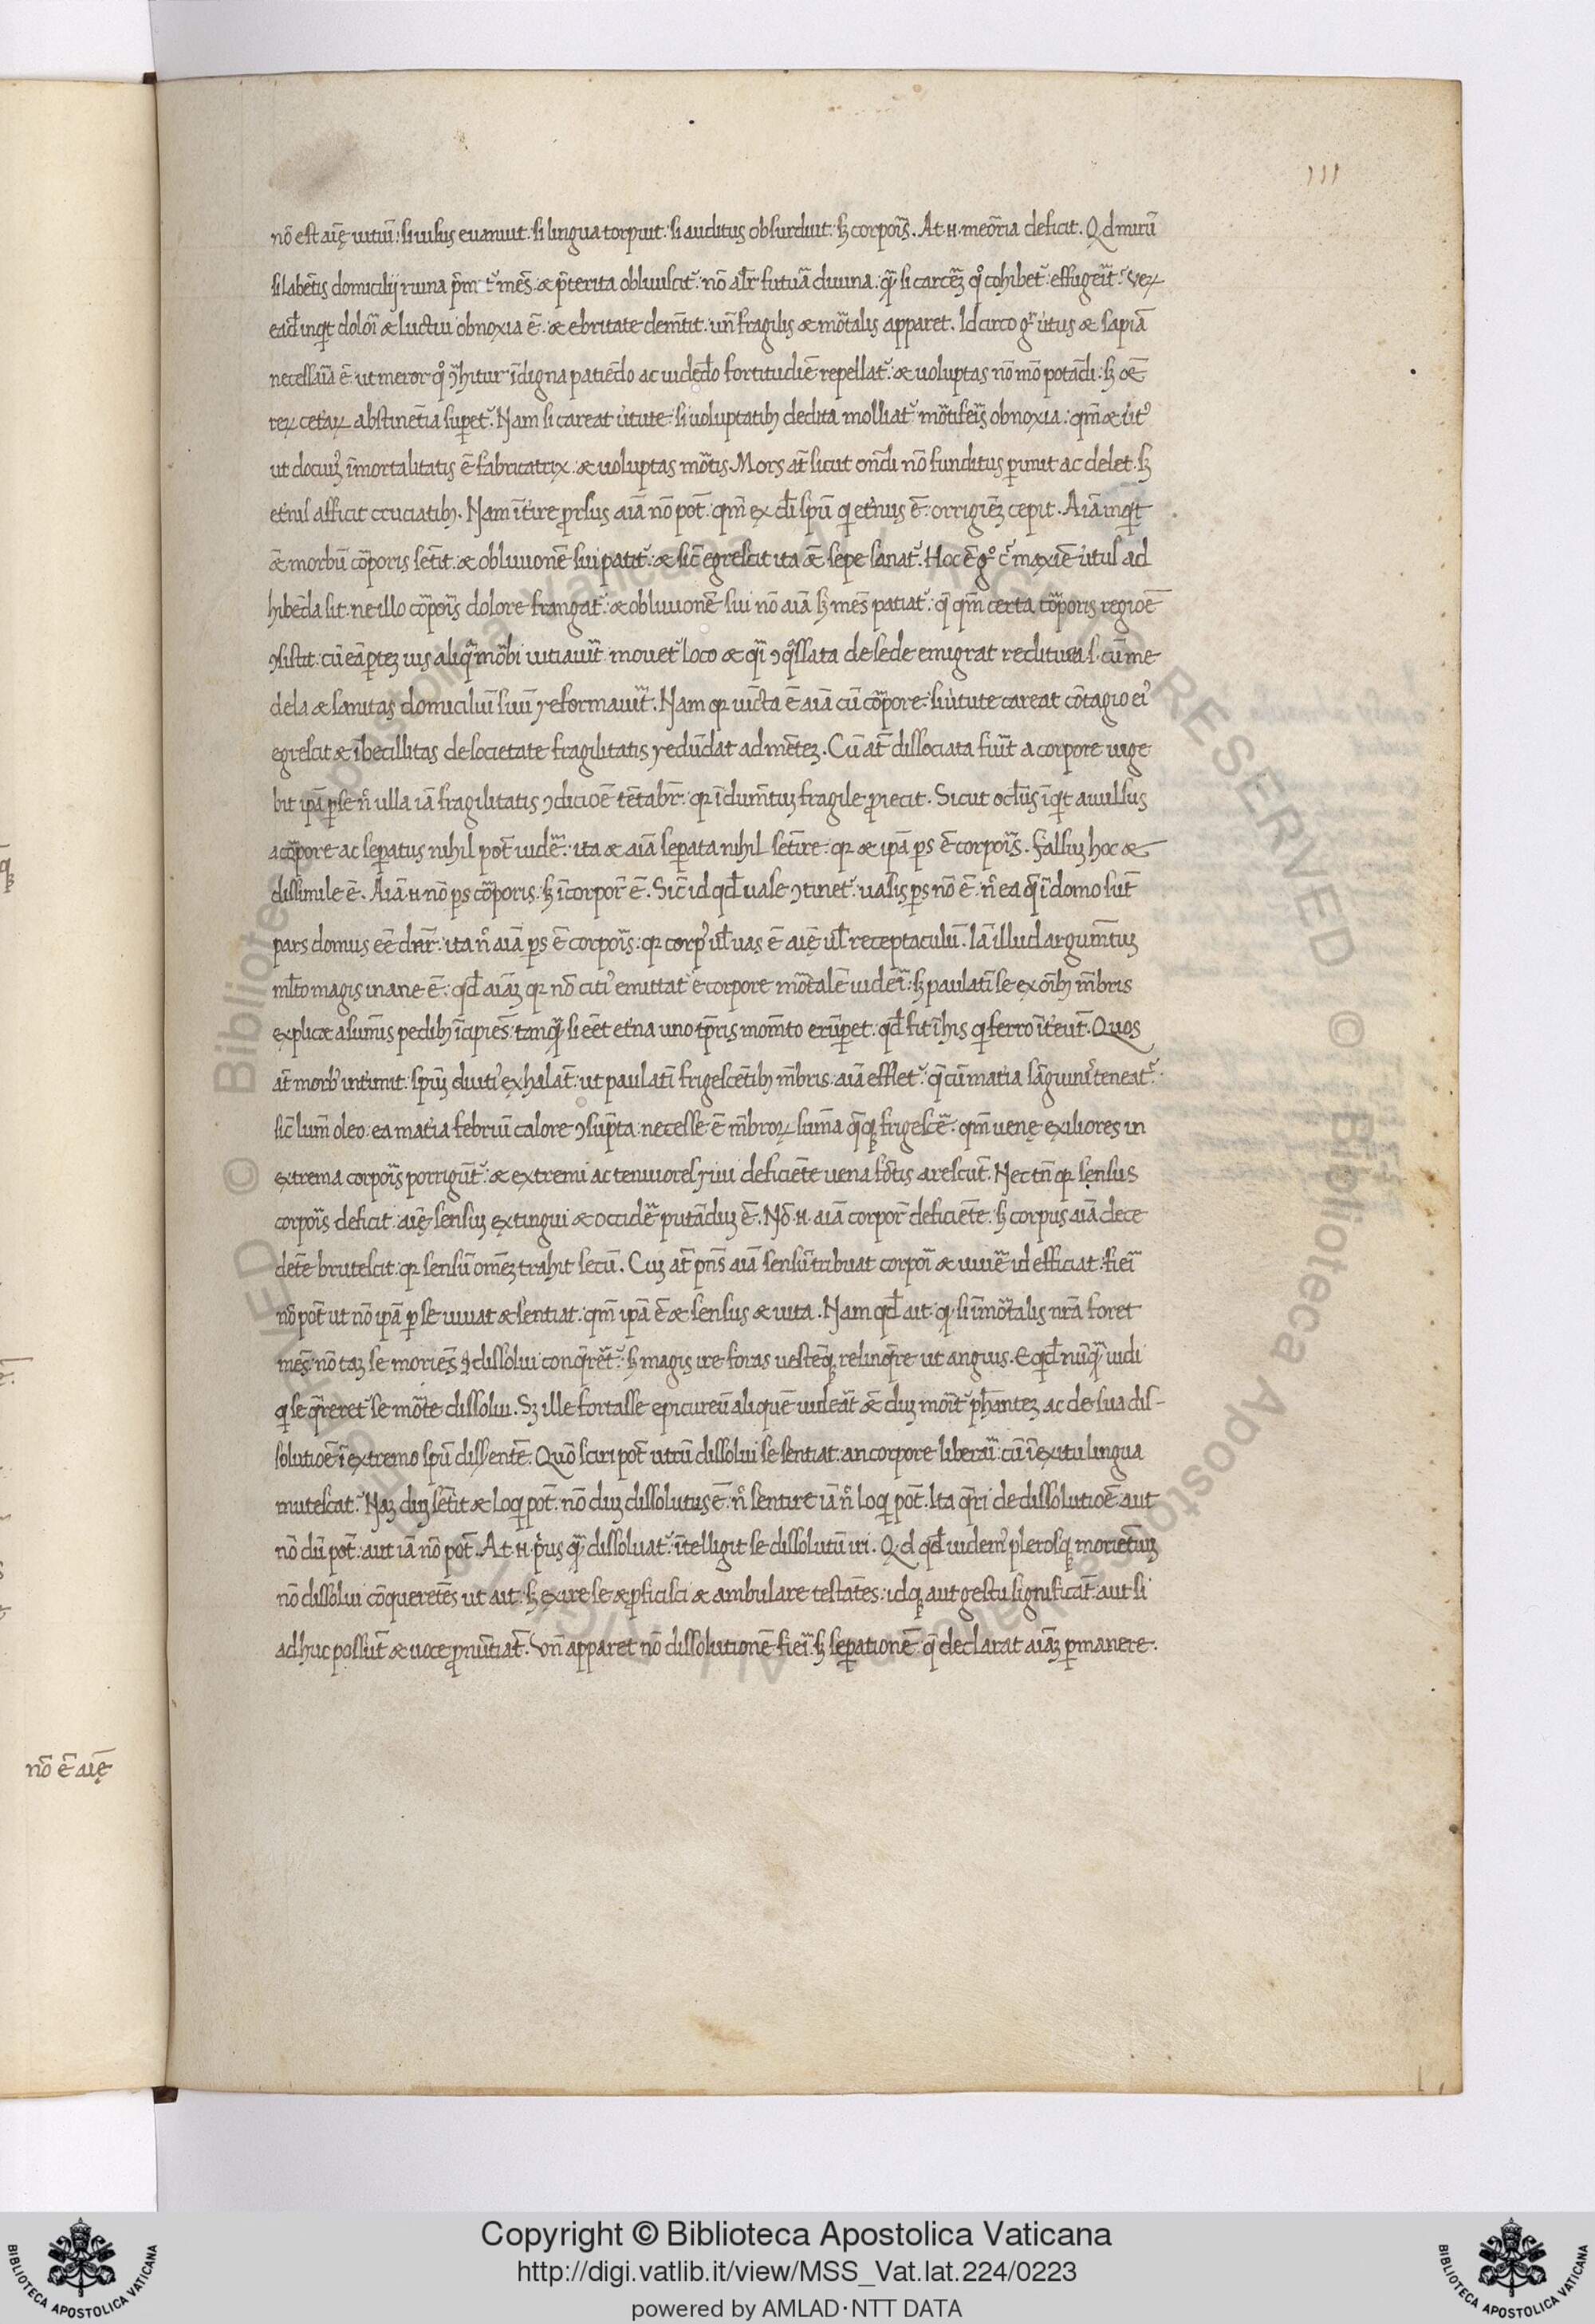 111
nō est aīę uitiū: si uisus euanuit: si lingua torpuit: si auditus obsurduit: sꝫ corporis. At .n. meōria deficit. Qd mirū
si labētis domicilij ruina mēs: & p̄terita obliuiscit᷑: nō alr̄ futurā diuina: qᷓ si carcerē qͦ cohibet᷑: effugerit. Veꝝ
eadē inqt dolori & luctui obnoxia ē: & ebrietate demētit: un̄ fragilis & mortalis apparet. Idcirco gͦ uirtus & sapiā
necessaria ē: ut meror qͦ ꝯtrahitur īdigna patiēdo ac uidēdo fortitudīe repellat᷑: & uoluptas nō mō potādi: sꝫ & ē
reꝝ ceteraꝝ abstinētia supet᷑. Nam si careat uirtute: si uoluptatibꝫ dedita molliat᷑: mortifeīs obnoxia: qm̄ & uirtꝰ
ut docuiꝰ īmortalitatis ē fabricatrix: & uoluptas mortis. Mors at̄ sicut ondi nō funditus ꝑimit ac delet: sꝫ
et̄nis afficit cruciatibꝫ. Nam īt̄ire prorsus aiā nō pōt: qm̄ ex dī spū q̇ et̄nus ē: orrigiēꝫ cepit. Aiā inqt
& morbū corporis sētit: & obliuionē sui patit᷑: & sic̄ egrescit ita & sepe sanat᷑. Hoc ē gͦ c᷑ maxīe uirtus ad
hibēda sit: ne illo corporis dolore frangat᷑: & obliuionē sui nō aiā sꝫ mēs patiat᷑: q̄ qm̄ certa corporis regiōe
ꝯsistit: cū eā ꝑtez uis aliqᷓ morbi uitiauit: mouet᷑ loco & q̄i ꝯqͣssata de sede emigrat reditura .s. cū me
dela & sanitas domiciliū suū reformauit. Nam qꝛ uīcta ē aiā cū corpore: si uirtute careat cōtagio eiꝰ
egrescit & ībecillitas de societate fragilitatis redūdat ad mētez. Cū at̄ dissociata fuit a corpore uige
bit ip̄a ꝑ se n̄ ulla iā fragilitatis ꝯdiciōe tētabr̄: qꝛ īdumētuꝫ fragile proiecit. Sicut ocl̄us īqt auulsus
a corpore ac seꝑatus nihil pōt uidē: ita & aiā seꝑata nihil sētire: qꝛ & ip̄a ps ē corporis. Falsuꝫ hoc &
dissimile ē. Aiā .n. nō ps corporis: sꝫ ī corpore ē. Sic̄ id qd̄ uase ꝯtinet᷑: uasis ps nō ē: n̄ ea q̄ ī domo sūt
pars domus eē dnr̄: ita n̄ aiā ps ē corporis: qꝛ corpꝰ ul̄ uas ē aīę ul̄ receptaculū. Iā illud argumētuꝫ
ml̄to magis inane ē: qd̄ aiāꝫ qꝛ nō citiꝰ emittat᷑ e corpore mortalē uidēī: sꝫ paulatī se ex oībꝫ mēbris
explicæ a sumis pedibꝫ īcipiēs: tanqᷓ si eēt et̄na uno tp̄ris momēto erūpet: qd̄ fit ī his q̇ ferro īt̄eūt. Quos
at̄ morbꝰ int̄imit: spūꝫ diutiꝰ exhalāt: ut paulatī frigescētibꝫ mēbris: aiā efflet᷑: q̄ cū mat̄ia sāguinis teneat᷑:
sic̄ lum̄ oleo: ea mat̄ia febriū calore ꝯsūpta: necesse ē mēbroꝝ suma q̄qꝫ frigescē: qm̄ uenę exiliores in
extrema corporis porrigūt᷑: & extremi ac tenuiores riui deficiēte uena fōtis arescūt. Nec tn̄ qꝛ sensus
corporis deficit: aīę sensuꝫ extingui & occidē putāduꝫ ē. Nō .n. aiā corpore deficiēte: sꝫ corpus aiā dece
dēte brutescit: qꝛ sensū omēꝫ trahit secū. Cuꝫ at̄ pn̄s aiā sensū tribuat corpoī & uiuē id efficiat: fieī
nō pōt ut nō ip̄a ꝑ se uiuat & sentiat: qm̄ ip̄a ē & sensus & uita. Nam qd̄ ait: q̇ si īmortalis nr̄a foret
mēs: nō taꝫ se moriēs dissolui conq̄rēt᷑: sꝫ magis ire foras uestēqꝫ relinq̄re ut anguis. Eqd̄ nūqᷓ uidi
q̇ se q̄reret᷑ se morte dissolui. Sꝫ ille fortasse epicureū aliquē uideāt & duꝫ morit᷑ phāntez ac de sua dis-
solutiōe ī extremo spū disserentē. Quō sciri pōt utrū dissolui se sentiat: an corpore liberaī: cū ī exitu lingua
mutescat᷑. Naꝫ duꝫ sētit & loqi pōt: nō duꝫ dissolutus ē: n̄ sentire iā n̄ loqi pōt. Ita q̄ri de dissolutiōe aut
nō dū pōt: aut iā nō pōt. At .n. prius qᷓ dissoluat᷑: ītelligit se dissolutū iri. Qd qd̄ uidemꝰ plerosqꝫ moriētiuꝫ
nō dissolui cōquerētēs ut ait: sꝫ exire se & proficisci & ambulare testātes: idqꝫ aut gestu significāt: aut si
adhuc possūt & uoce pronūtiāt. Vn̄ apparet nō dissolutionē fieī: sꝫ seꝑationē: q̄ declarat aiāꝫ ꝑmanere.
nō ē aīę
Copyright © Biblioteca Apostolica Vaticana
http://digi.vatlib.it/view/MSS_Vat.lat.224/0223
powered by AMLAD·NTT DATA